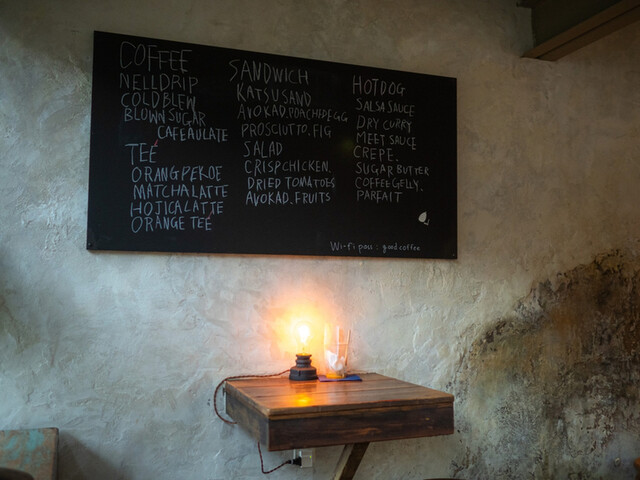 COFFEE
NELLDRIP
COLDBLEW
BLOWN SUGAR
CAFEAULATE
TEE
ORANGPEKOE
MATCHALATTE
HOJICALATTE
ORANGE TEE
SANDWICH
KATSUSAND
AVOKAD.POACHEDEGG
PROSCIUTTO.FIG
SALAD
CRISPCHICKEN.
DRIED TOMATOES
AVOKAD.FRUITS
HOTDOG
SALSA SAUCE
DRY CURRY
MEET SAUCE
CREPE.
SUGAR BUTTER
COFFEEGELLY.
PARFAIT
Wi-fi pass : goodcoffee